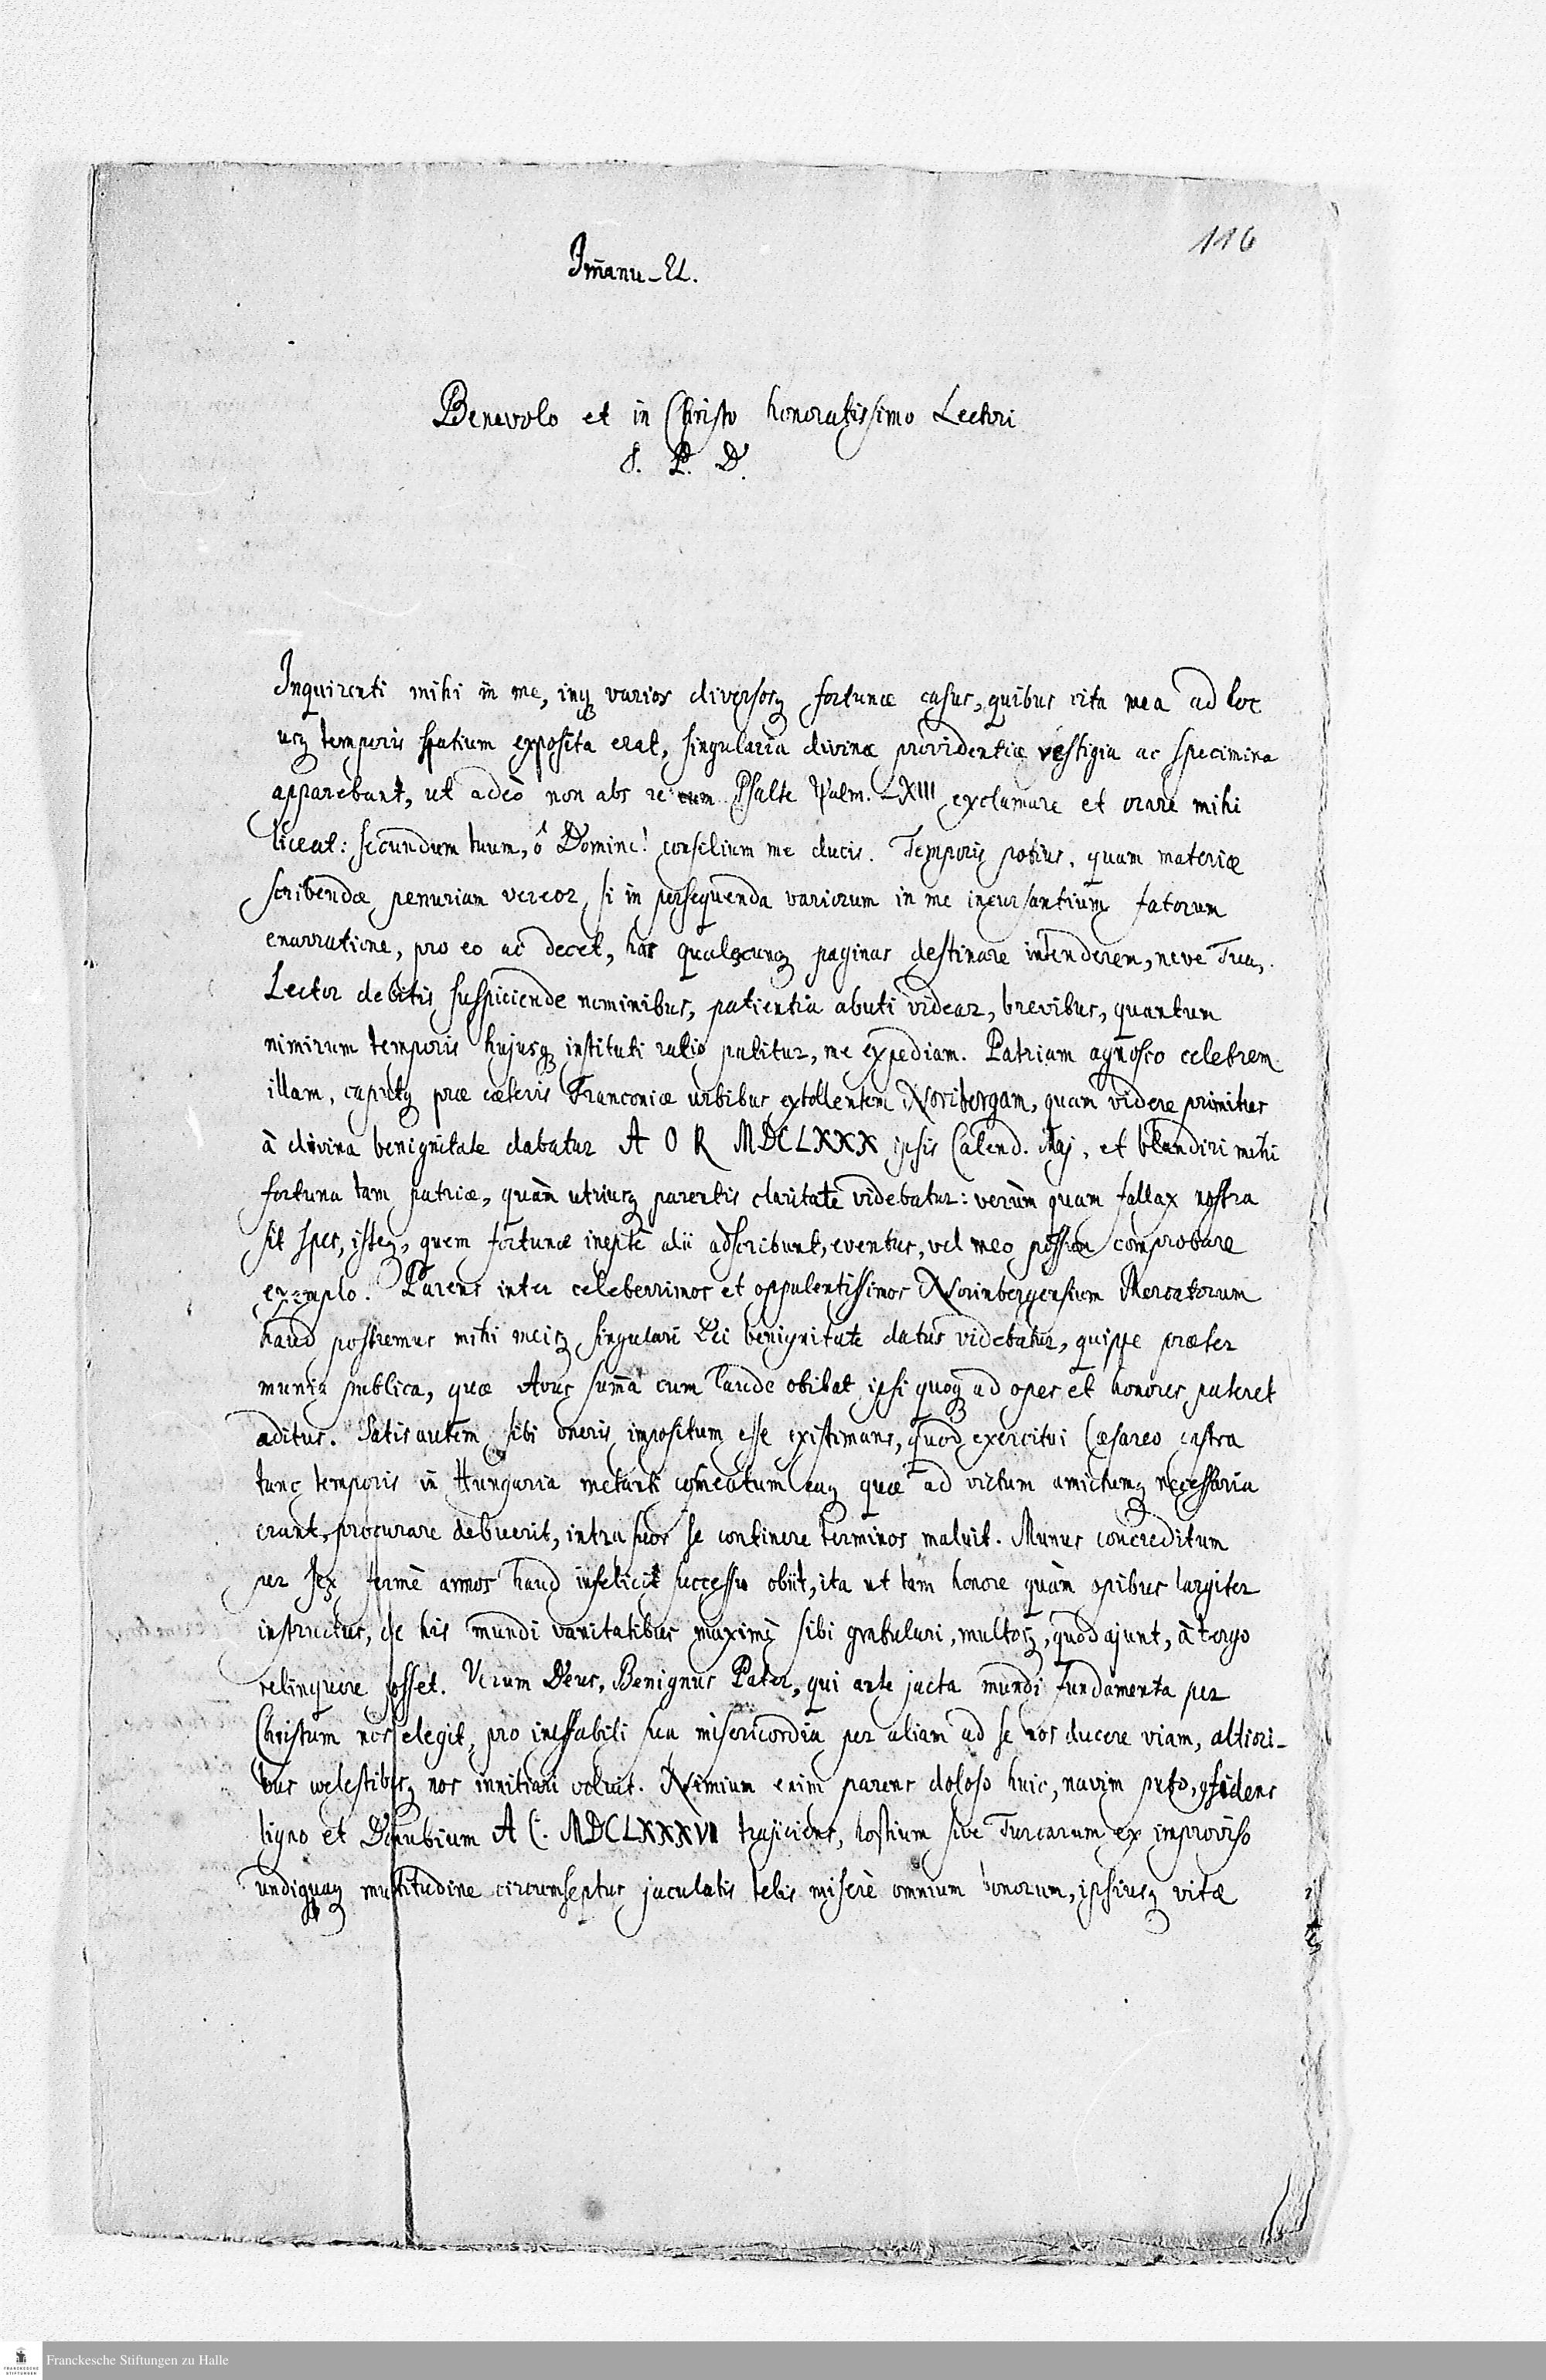 116
Im̃anu-El.
Benevolo et in Christo honoratissimo Lectori
S. P. D.
Inquirenti mihi in me, inq varios diversosq fortunæ casus, quibus vita mea ad hoc
usq temporis spatium exposita erat, singularia divinæ providentiæ vestigia ac specimina
apparebant, ut adeò non abs re cum Psalte Psalm. LXXIII exclamare et orare mihi
liceat: secundum tuum, ô Domine! consilium me ducis. Temporis potius, quam materiæ
scribendæ penuriam vereor, si in persequenda variorum in me incursantium fatorum
enarratione, pro eo ac decet, has qualescunq paginas destinare intenderem, neve Tua,
Lector debitis suspiciende nominibus, patientia abuti videar, brevibus, quantum
nimirum temporis hujusq instituti ratio patitur, me expediam. Patriam agnosco celebrem
illam, caputq præ cæteris Franconiæ urbibus extollentem Noribergam, quam videre primitus
à divina benignitate dabatur A O R MDCLXXX ipsis Calend. Maj, et blandiri mihi
fortuna tam patriæ, quàm utriusq parentis claritate videbatur: verùm quam fallax nostra
sit spes, isteq, quem fortunæ ineptè alii adscribunt, eventus, vel meo possum comprobare
exemplo. Parens inter celeberrimos et oppulentissimos Norinbergensium Mercatorum
haud postremus mihi meisq singulari Dei benignitate datus videbatur, quippe præter
munia publica, quæ Avus sum̃a cum laude obibat ipsi quoq ad opes et honores pateret
aditus. Satis autem sibi oneris impositum esse existimans, quod exercitui Cæsareo castra
tunc temporis in Hungaria metanti com̃eatum eaq quæ ad victum amictumq necessaria
erant, procurare debuerit, intra suos se continere terminos maluit. Munus concreditum
per sex fermè annos haud infelici successu obiit, ita ut tam honore quàm opibus largiter
instructus, de his mundi vanitatibus maximè sibi gratulari, multosq, quod ajunt, à tergo
relinquere posset. Verum Deus, Benignus Pater, qui ante jacta mundi fundamenta per
Christum nos elegit, pro ineffabili sua misericordia per aliam ad se nos ducere viam, altiori-
bus cœlestibusq nos innitiari voluit. Nimium enim parens doloso huic, navim puto, 9fidens
ligno et Danubium A C. MDCLXXXVII trajiciens, hostium sive Turcarum ex improviso
undiquaq multitudine circumseptus jaculatis telis miserè omnium bonorum, ipsiusq vitæ
Franckesche Stiftungen zu Halle